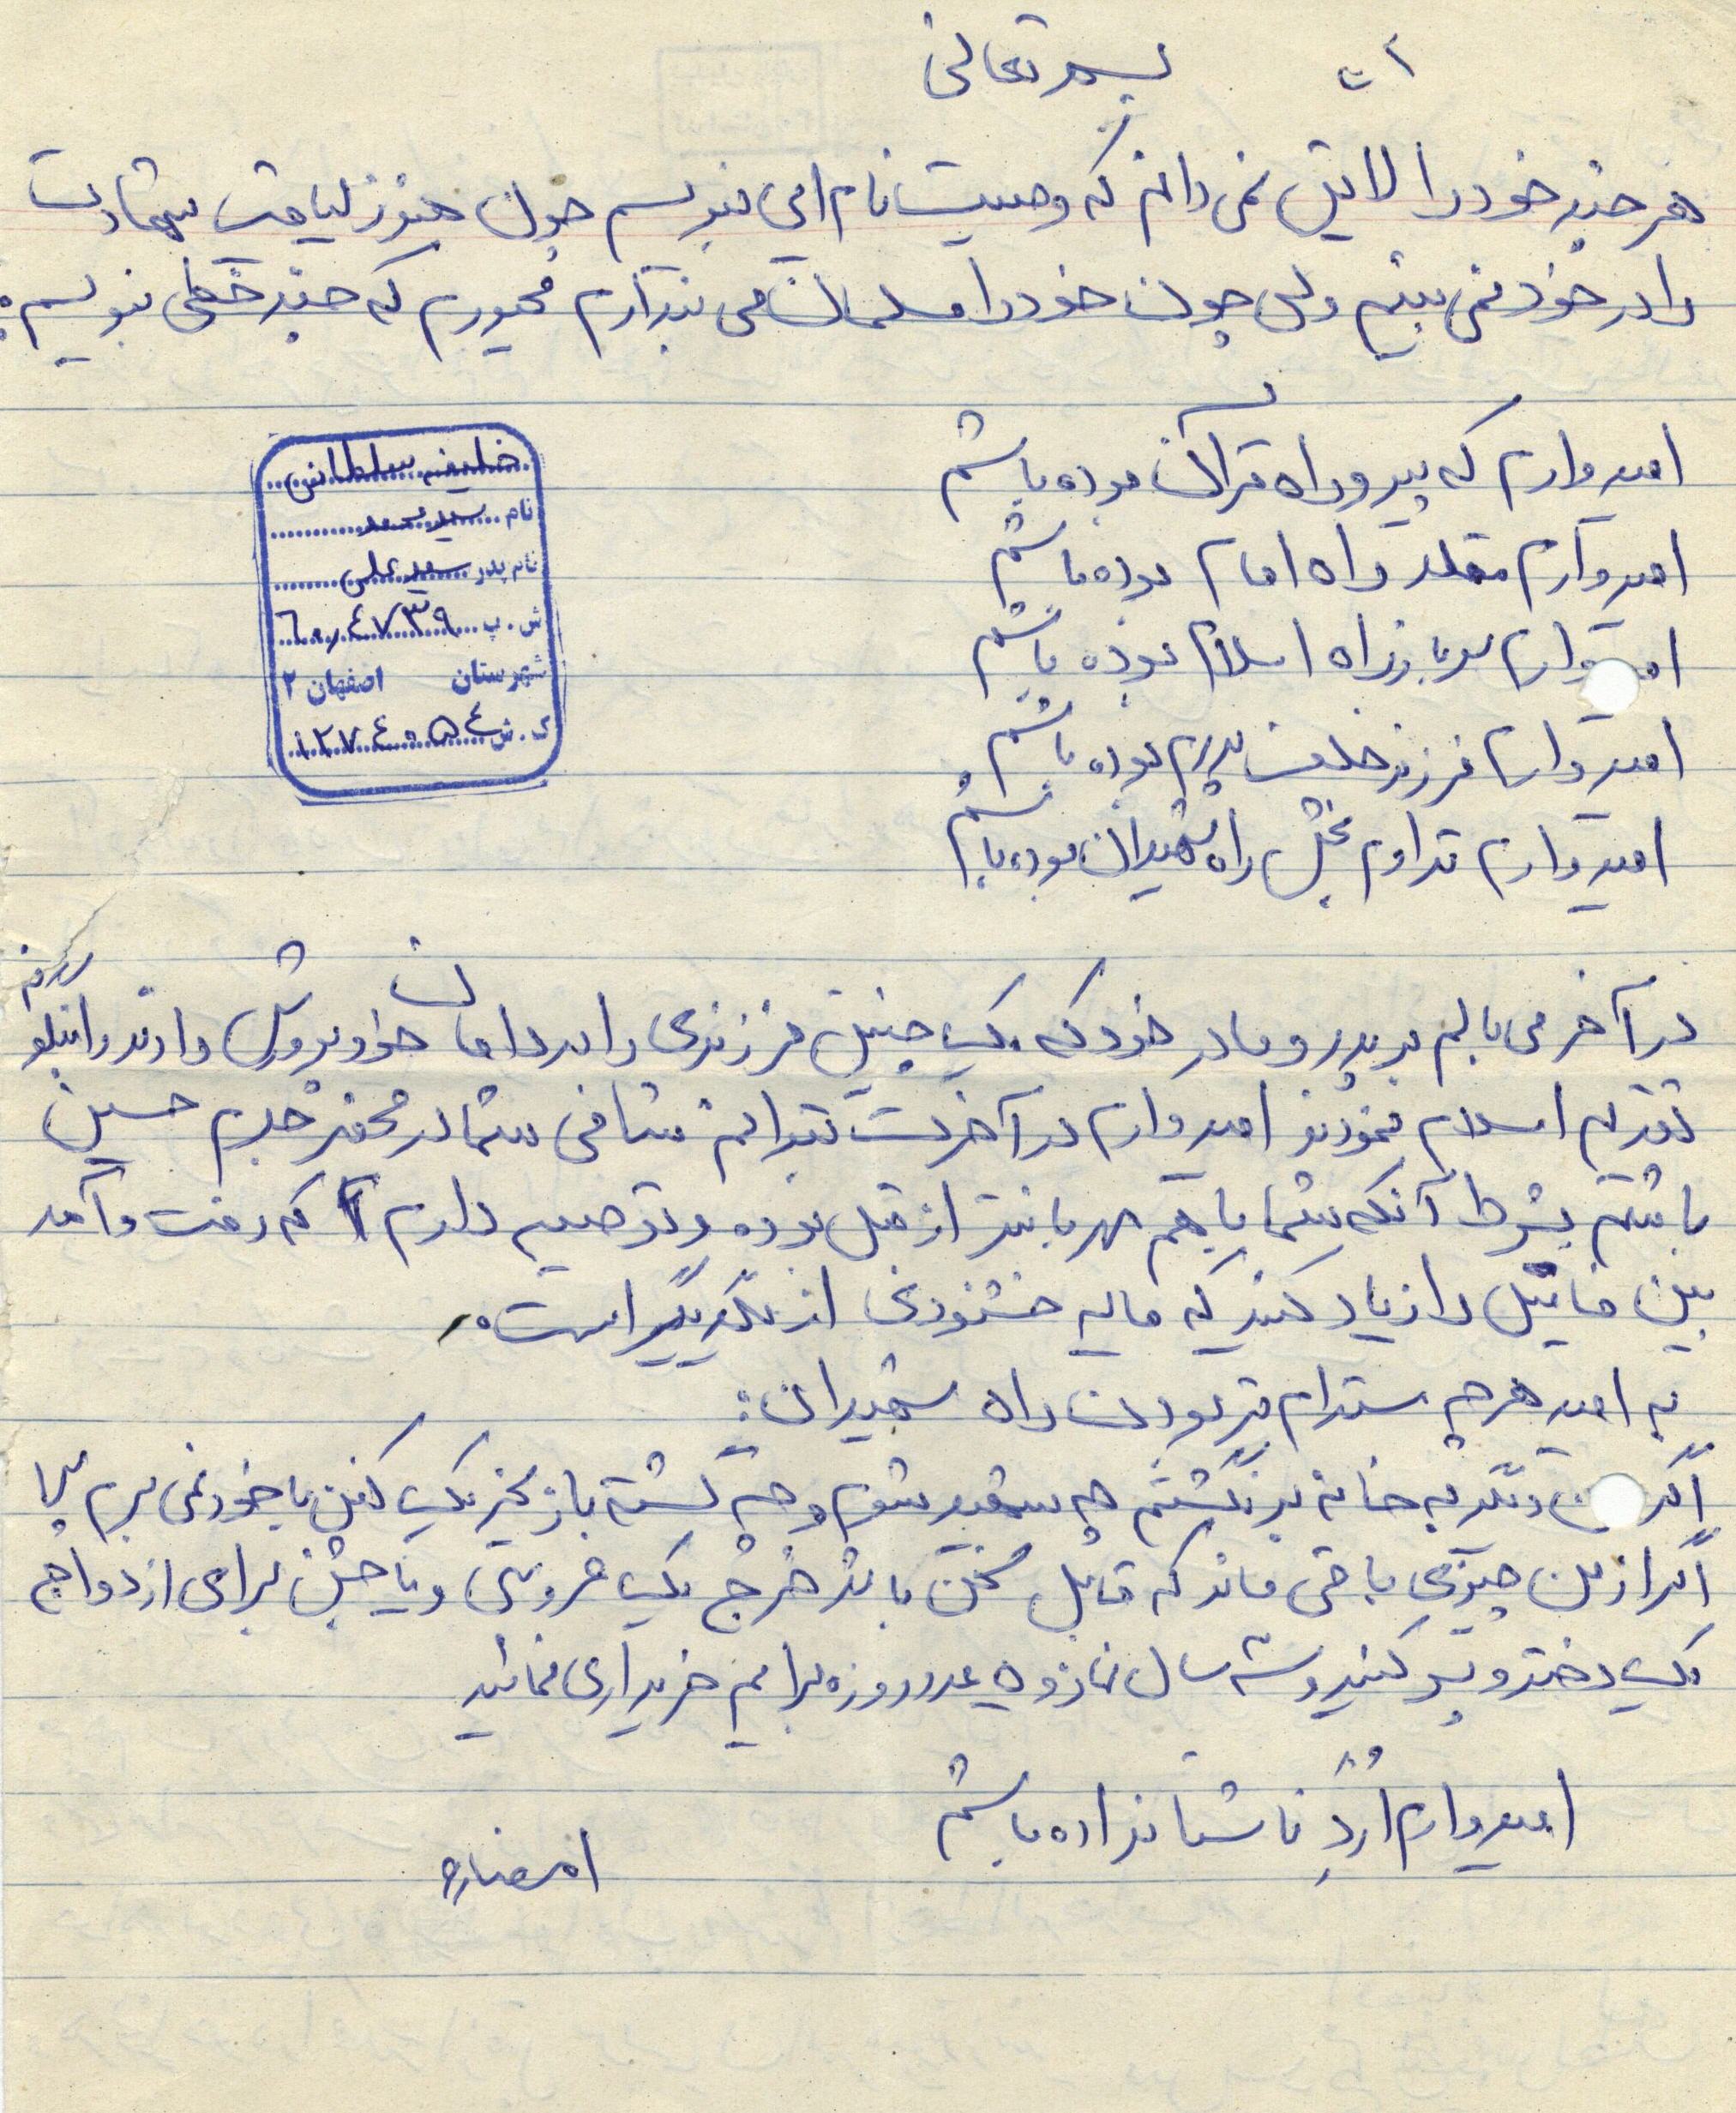 بسمه تعالی
هر چند خود را لایق نمی دانم که وصیت نامه ای بنویسم چون هنوز لیاقت شهادت
را در خود نمی بینم ولی چون خود را مسلمان می پندارم مجبورم که چند خطی بنویسم:
امیدوارم که پیرو راه قرآن بوده باشم
امیدوارم مقلد راه امام بوده باشم
امیدوارم سرباز راه اسلام بوده باشم
امیدوارم فرزند خلف پدرم بوده باشم.
امیدوارم تداوم بخش راه شهیدان بوده باشم
خلیفه سلطانی
نام سید
نام پدر سید علی
ش. پ ٦٠ر٤٧٣٩
شهرستان اصفهان ٢
ک. ش ١٢٧٤٠٥٤
در آخر می بالم بر پدر و مادر خود که یک چنین فرزندی را در دامان خود پرورش دادند و اینگونه
تقدیم اسلام نمودند امیدوارم در آخرت بتوانم شافی شما در محضر جدم حسین
باشم بشرط آنکه شما با هم مهربانتر از قبل بوده و توصیه دارم که رفت و آمد
بین فامیل را زیاد کنید که مایه خشنودی از یکدیگر است.
به امید هرچه مستدام تر بودن راه شهیدان:
اگر من دیگر به خانه برنگشتم چه شهید شوم و چه کشته باز بجز یک کفن با خود نمی برم
اگر از من چیزی باقی ماند که قابل سخن باشد خرج یک عروسی و یا جشن برای ازدواج
یک دختر و پسر کنید و سه سال نماز و عدد روزه برایم خریداری نمائید
امیدوارم اُرُد ناشتا نداده باشم
امضاء